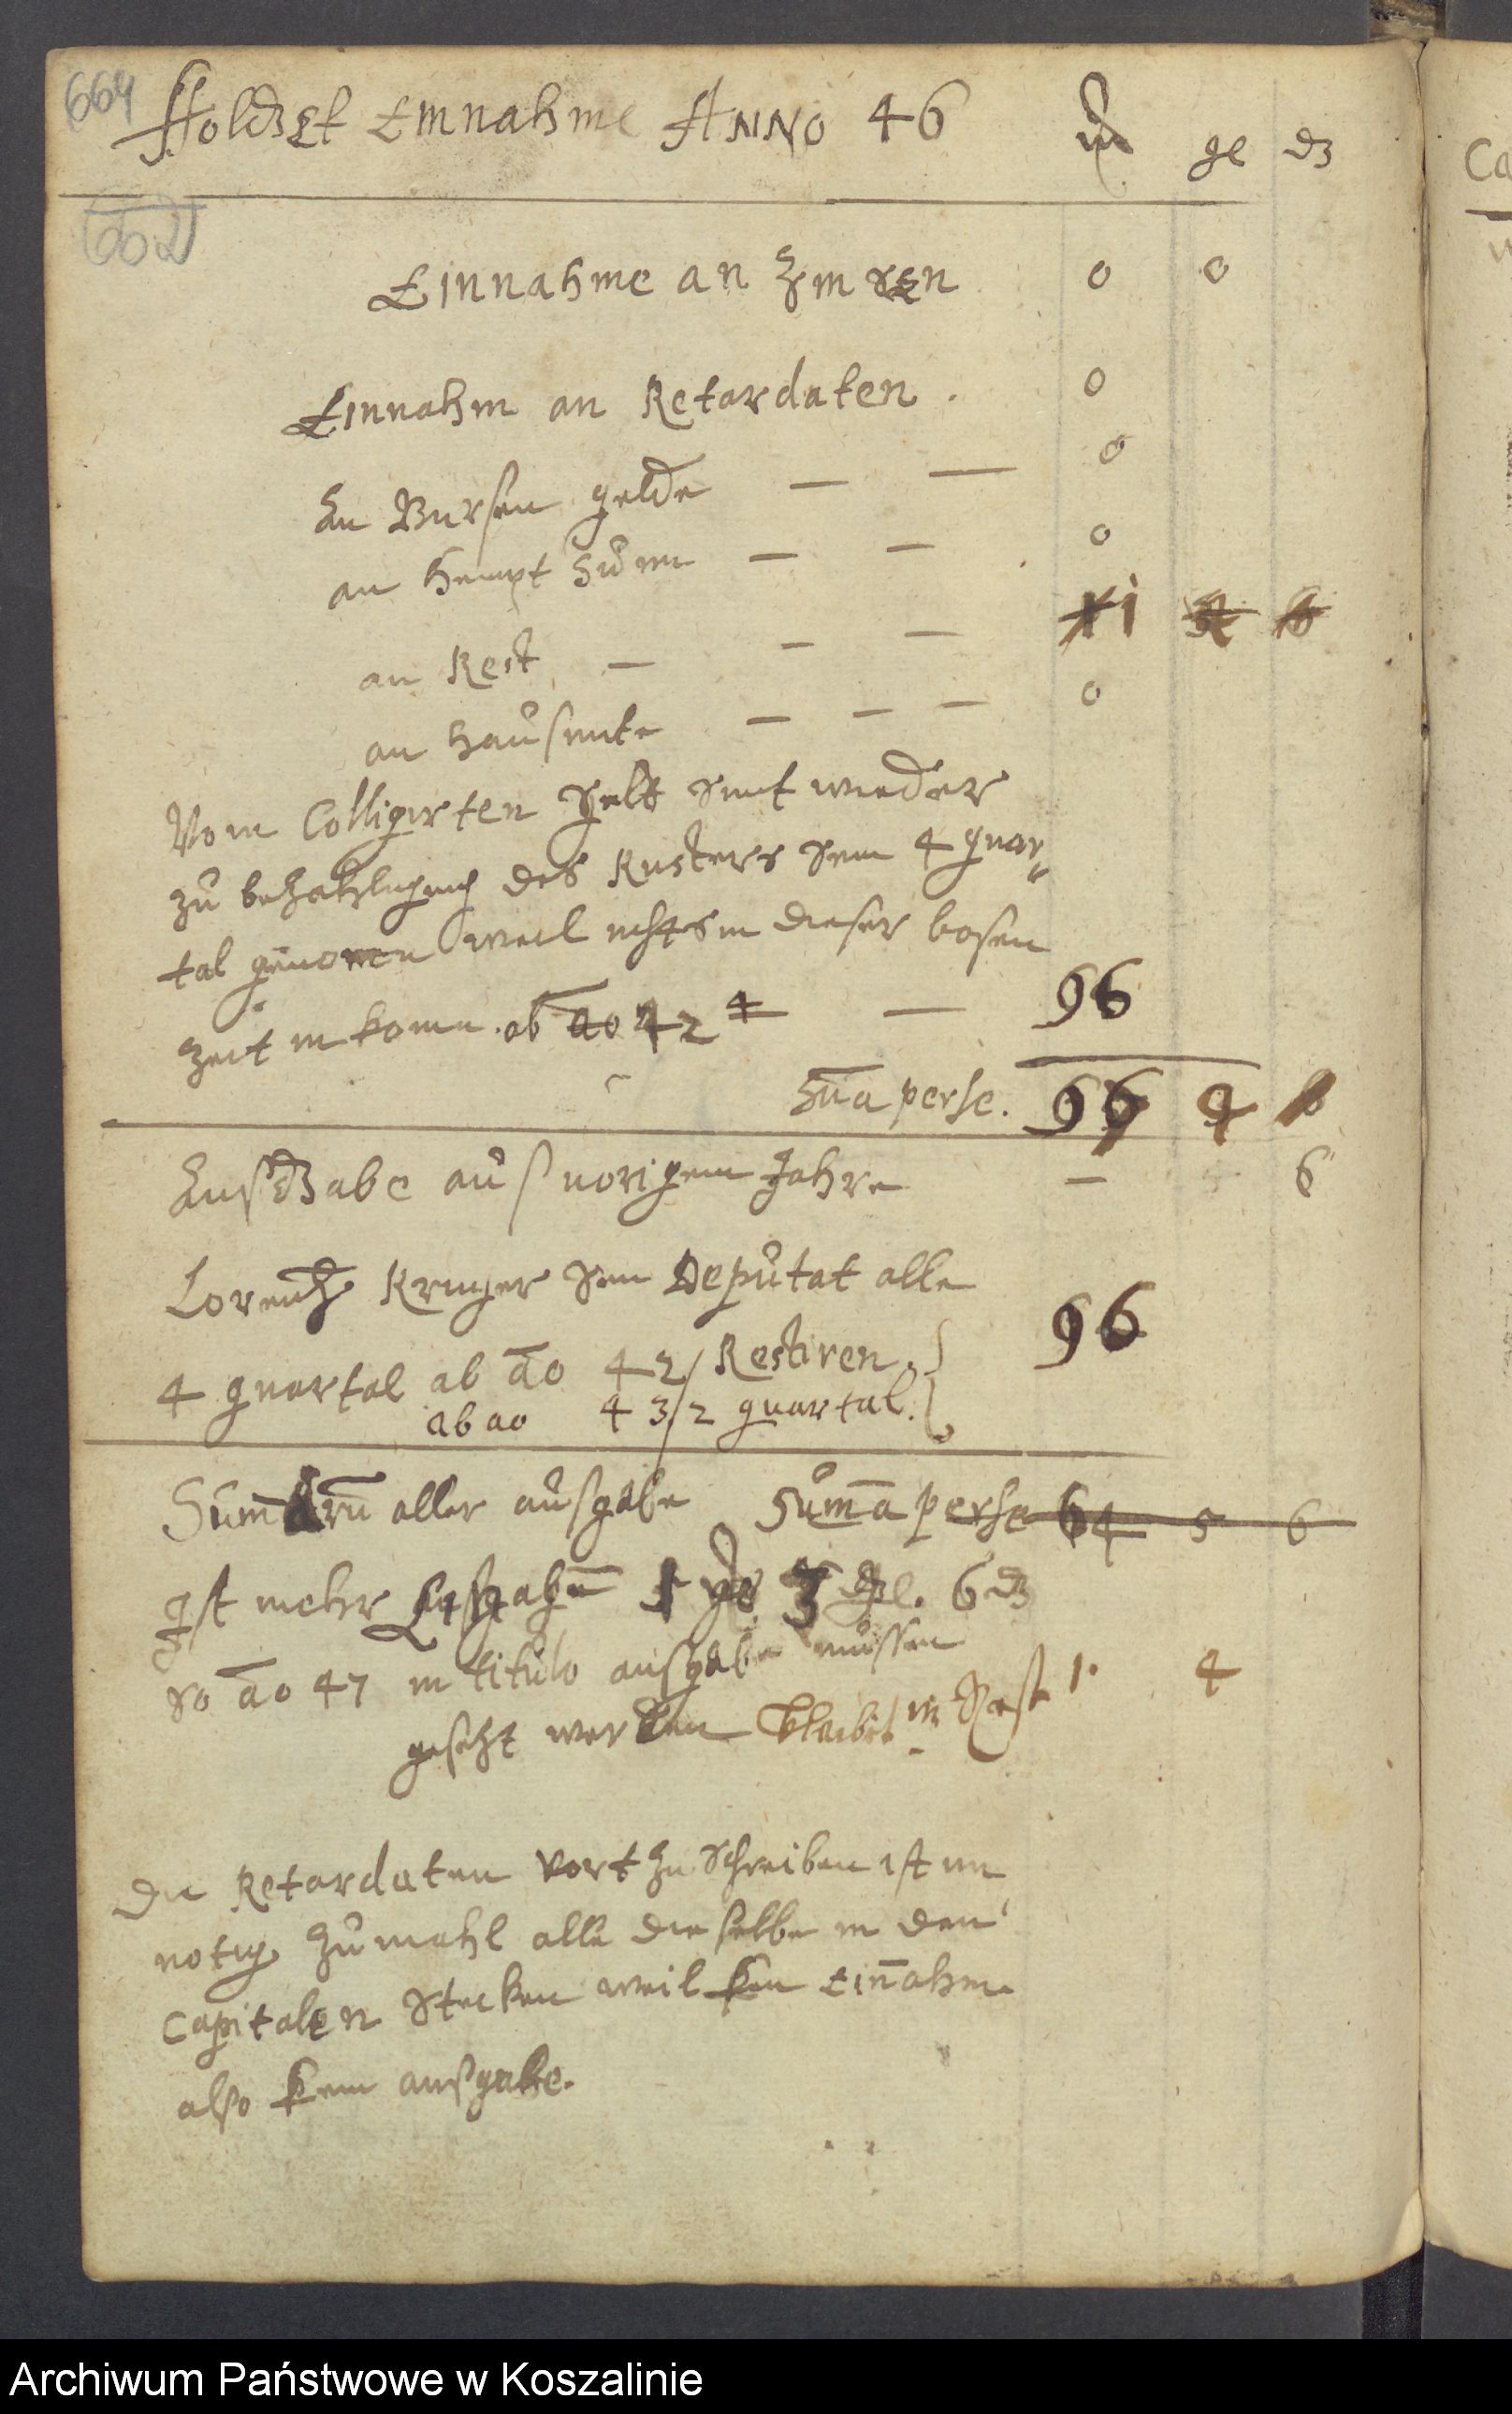 664
Holdzet Einnahme ANNO 46 gl ₰
662
Einnahme an Zinsen 0 0
Einnahm an Retardaten. 0
An Bursen gelde — — 0
an Heupt Sum̄ — — 0
an Rest — — — 1
an Hausmite — — — 0
Vom Colligirten gelt wieder
zu bezahlung des Kusters sein 4 quar
tal genomen weil nichts in dieser bosen
zeit in komn. ab ao 42 — 96
Sūa perse. 96
Ausgabe aus vorigem Jahre — 6
Lorentz Kruger sein Deputat alle
4 quartal ab āo 42 / Restiren. 96
ab ao 43 / 2 quartal.
Sum̄arū aller ausgabe Sum̄a perse 64 5 6
Ist mehr gl. 6 ₰
so āo 47 in titulo ausgabe mussen
gesetzt werden bleibet in Rest 1. 4
Die Retardaten vort zu schreiben ist un
notig zumahl alle dieselbe in den
Capitalen stecken weil kein ein̄ahm
also kein ausgabe.
Ca
Archiwum Państwowe w Koszalinie